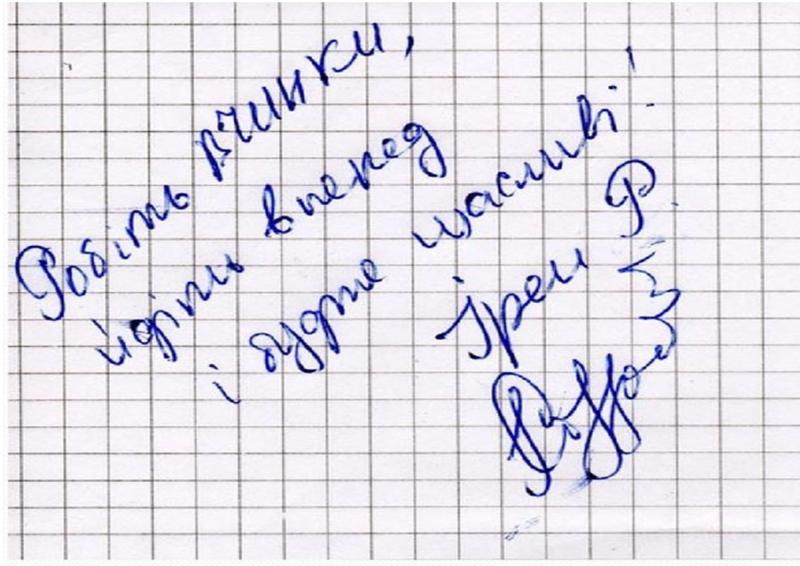 Робіть вчинки,
йдіть вперед
і будьте щасливі!
Ірен Р.